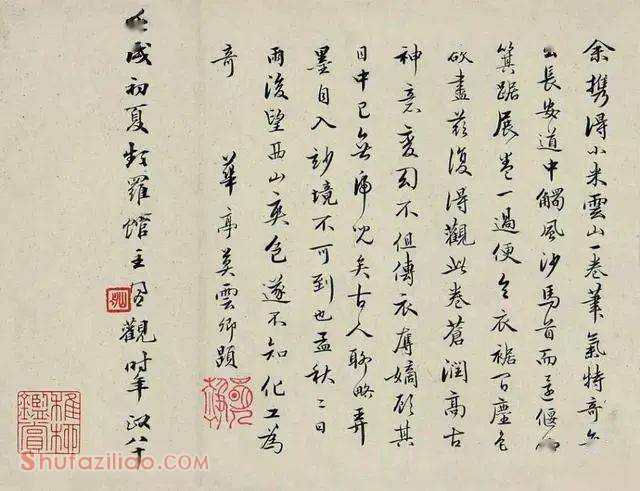 余携得小米雲山一卷筆氣特奇每
出長安道中觸風沙馬首而還偃
箕踞展卷一過便令衣裾間塵色
欲盡茲復得觀此卷蒼潤高古
神意變幻不但傳衣嫡顧其
目中已無虎兒矣古人聊略弄
墨自入妙境不可到也孟秋二日
雨後望西山爽色遂不知化工為
奇
華亭莫雲卿題
壬戌初夏頻羅館主觀時年政八十
稚柳鑑賞
Shufaziliao.com